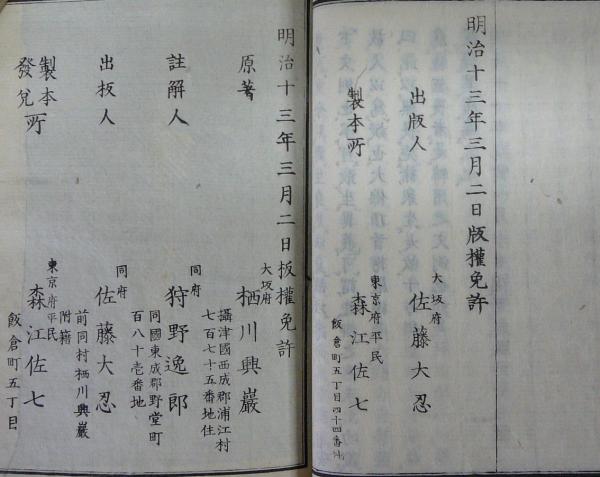 明治十三年三月二日版權免許
出版人
大坂府
佐藤大忍
製本所
東京府平民
森江佐七
飯倉町五丁目四十四番地
明治十三年三月二日板權免許
原著
大坂府
栖川興巖
攝津國西成郡浦江村
七百七十五番地住
註解人
同府
狩野逸郎
同國東成郡野堂町
百八十壱番地
出板人
同府
佐藤大忍
前同村栖川興巖
附籍
製本所
發兌
東京府平民
森江佐七
飯倉町五丁目